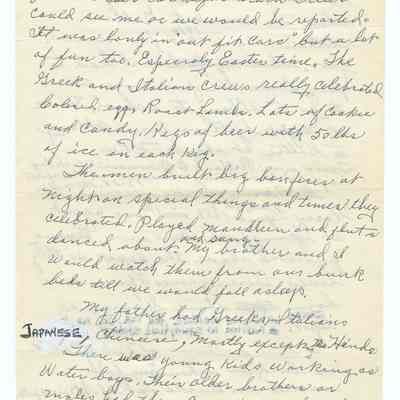 could see me or we would be reported.
It was lonly in "out fit cars" but a lot
of fun too. Especialy Easter time. The
Greek and Italians crews really celebrated
Colored eggs Roast Lambs. Lots of Cookie
and Candy. Kegs of beer with 50 lbs
of ice on each Keg.
The men built big bonfires at
night on special things and times they
celebrated. Played mandolin and flute
danced about and sang. My brother and I
would watch them from our bunk
beds till we would fall asleep.
My father had Greeks, Italians
JAPANESE, Chineese, mostly except
There was young Kids working as
Water boys. Their older brothers or